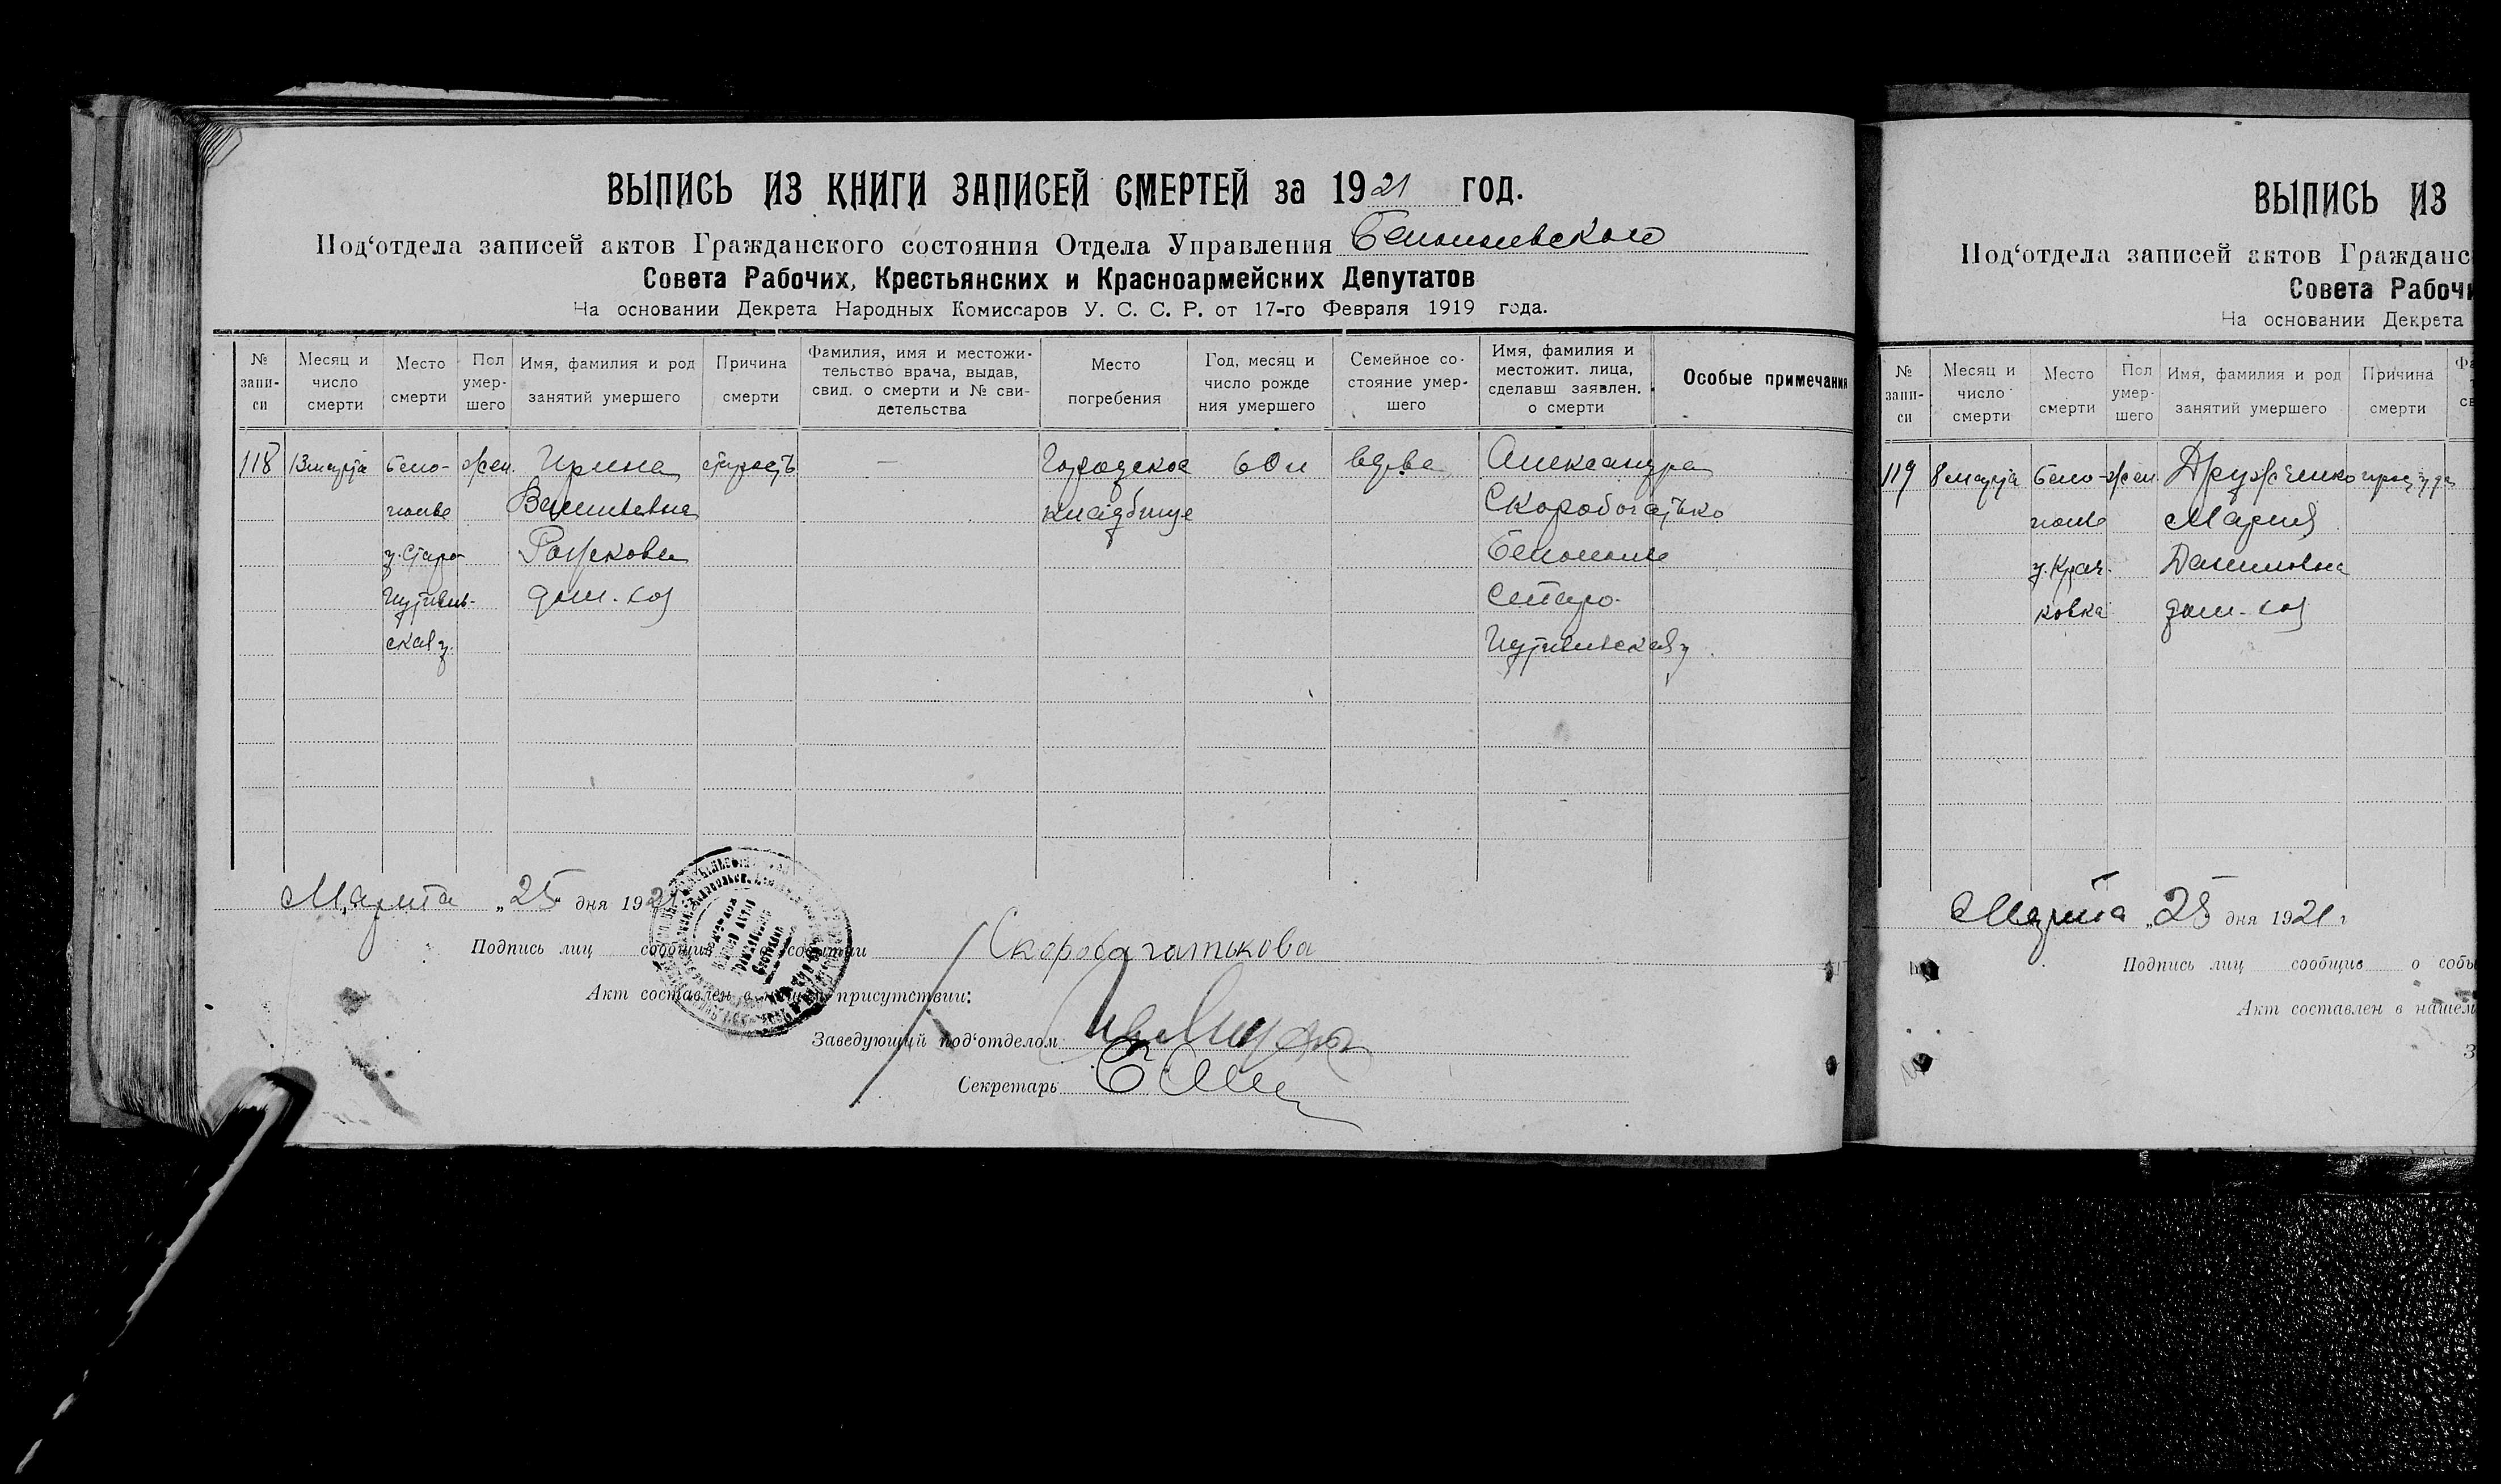 ВЫПИСЬ ИЗ КНИГИ ЗАПИСЕЙ СМЕРТЕЙ за 1921 год.
Под‘отдела записей актов Гражданского состояния Отдела Управления Белопольского
Совета Рабочих, Крестьянских и Красноармейских Депутатов
На основании Декрета Народных Комиссаров У. С. С. Р. от 17-го Февраля 1919 года.
№ запи-си
Месяц и число смерти
Место смерти
Пол умер-шего
Имя, фамилия и род занятий умершего
Причина смерти
Фамилия, имя и местожи-тельство врача, выдав, свид. о смерти и № сви-детельства
Место погребения
Год, месяц и число рожде ния умершего
Семейное со-стояние умер-шего
Имя, фамилия и местожит. лица, сделавш заявлен. о смерти
Особые примечания
118 13 марта Бело- жен. Ирина старость — Городское 60 л вдова Александра
полье Васильевна кладбище Скоробогатько
у. Старо- Белополье
Путивль- дом. хоз Старо-
ская у. Путивльская у.
Марта „25 дня 1921
Подпись лиц сообщив о событии Скоробагатькова
Акт составлен в нашем присутствии:
Заведующий под‘отделом
Секретарь
ВЫПИСЬ ИЗ
Под‘отдела записей актов Гражданс
Совета Рабоч
На основании Декрета
№ запи-си
Месяц и число смерти
Место смерти
Пол умер-шего
Имя, фамилия и род занятий умершего
Причина смерти
119 8 марта Бело- жен. Друженко
полье Мария
у. Крач- Даниловна
ковка дом. хоз
Марта „25 дня 1921 г
Подпись лиц сообщив о собы
Акт составлен в нашем
З